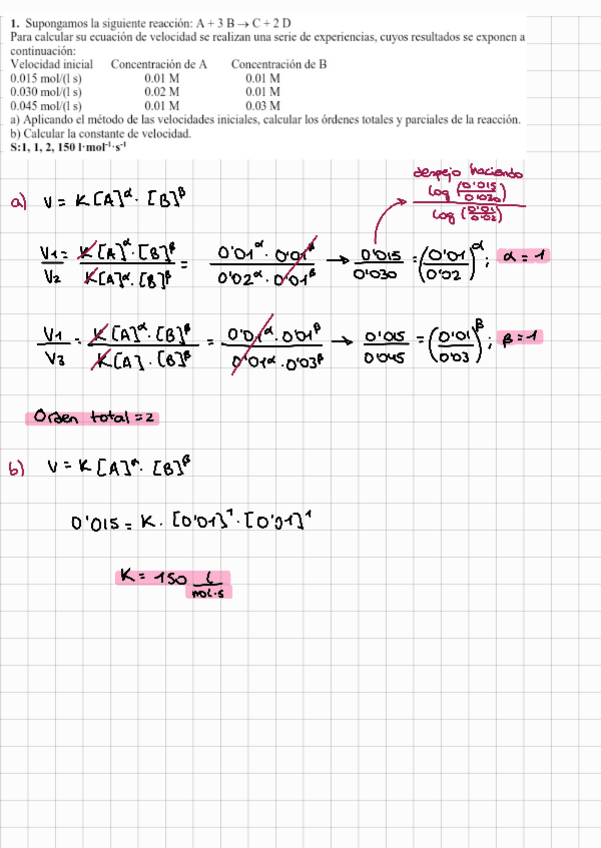 1. Supongamos la siguiente reacción: A + 3 B → C + 2 D
Para calcular su ecuación de velocidad se realizan una serie de experiencias, cuyos resultados se exponen a
continuación:
Velocidad inicial Concentración de A Concentración de B
0.015 mol/(l s) 0.01 M 0.01 M
0.030 mol/(l s) 0.02 M 0.01 M
0.045 mol/(l s) 0.01 M 0.03 M
a) Aplicando el método de las velocidades iniciales, calcular los órdenes totales y parciales de la reacción.
b) Calcular la constante de velocidad.
S:1, 1, 2, 150 l·mol⁻¹·s⁻¹
despejo haciendo
log (0'015/0'030) / log (0'01/0'02)
a) V = K[A]^α · [B]^β
V1/V2 = K[A]^α · [B]^β / K[A]^α · [B]^β = 0'01^α · 0'01^β / 0'02^α · 0'01^β → 0'015/0'030 = (0'01/0'02)^α ; α = 1
V1/V3 = K[A]^α · [B]^β / K[A] · [B]^β = 0'01^α · 0'01^β / 0'01^α · 0'03^β → 0'015/0'045 = (0'01/0'03)^β ; β = 1
Orden total = 2
b) V = K[A]^α · [B]^β
0'015 = K · [0'01]^1 · [0'01]^1
K = 150 L/mol·s